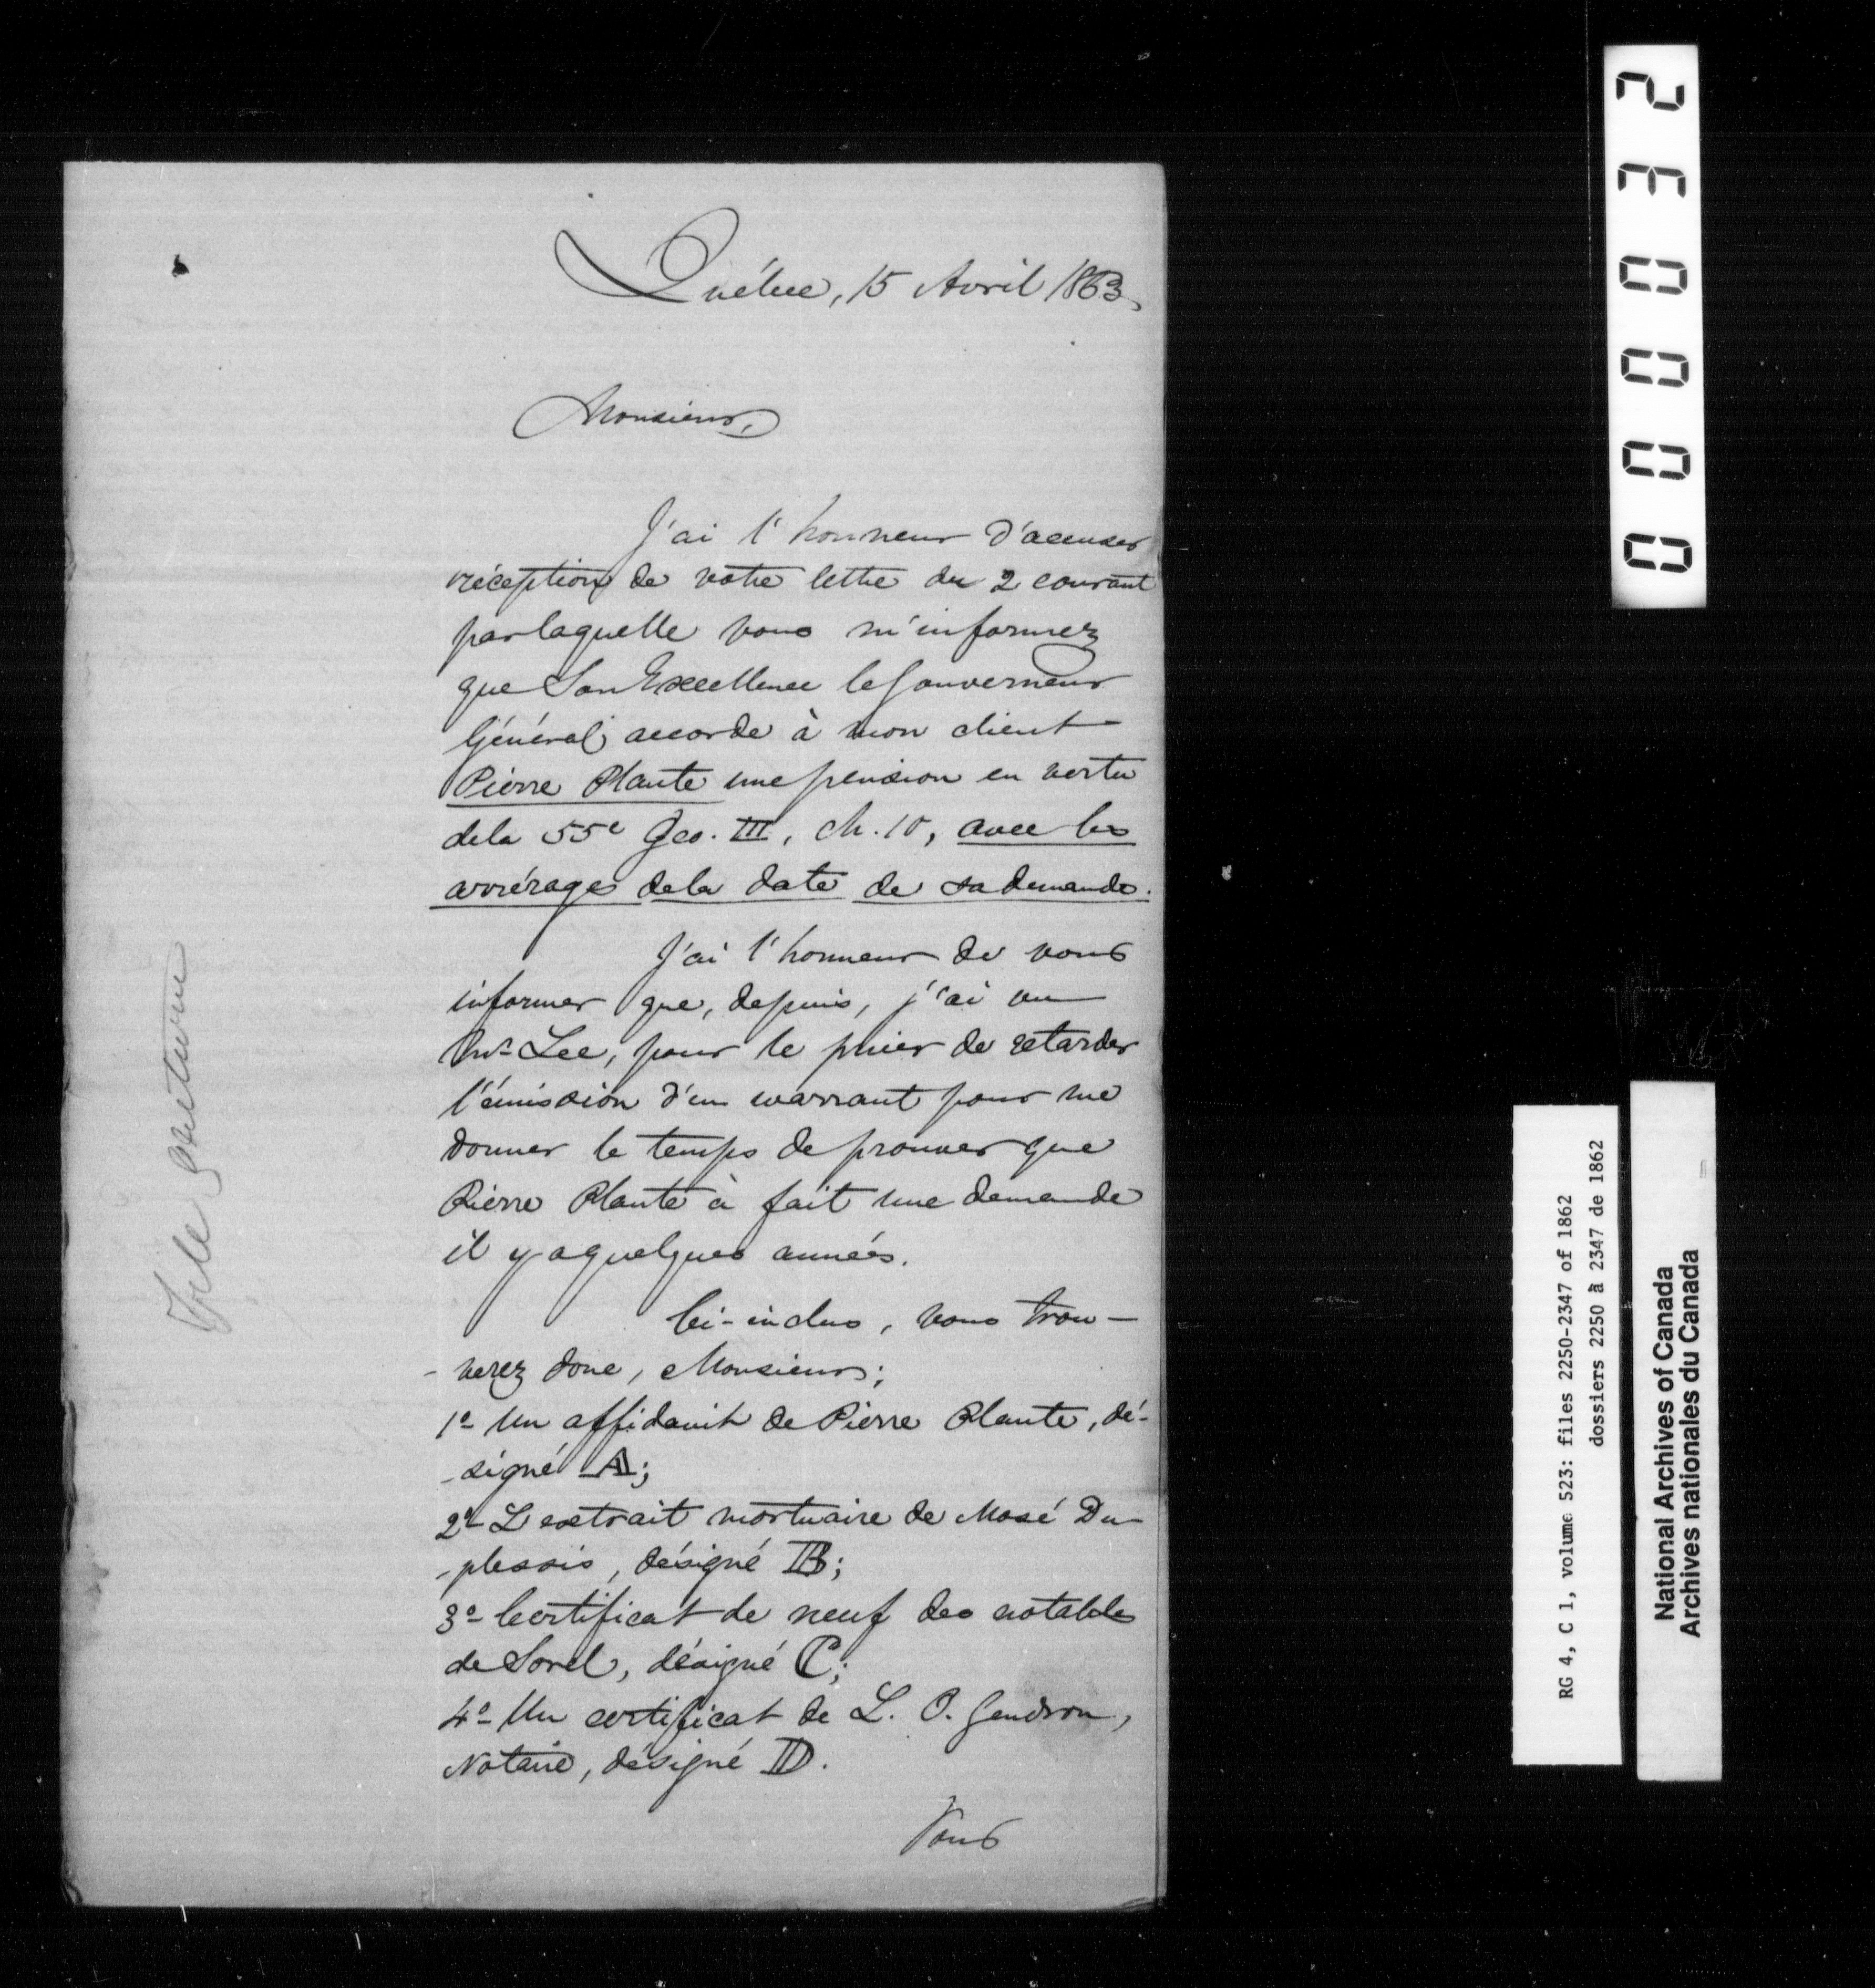 Québec, 15 Avril 1863,
Monsieur,
J'ai l'honneur d'accuser
réception de votre lettre du 2 courant
par laquelle vous m'informez
que Son Excellence le Gouverneur
Général accorde à mon client
Pierre Plante une pension en vertu
de la 55e Geo. III, ch. 10, avec les
arrérages de la date de sa demande.
J'ai l'honneur de vous
informer que, depuis, j'ai vu
Mr. Lee, pour le prier de retarder
l'émission d'un warrant pour me
donner le temps de prouver que
Pierre Plante à fait une demande
il y a quelques années.
Ci-inclus, vous trou-
-verez donc, Monsieur;
1o- Un affidavit de Pierre Plante, dé-
-signé A;
2o- L'extrait mortuaire de Mosé Du-
-plessis, désigné B;
3o- Certificat de neuf des notables
de Sorel, désigné C;
4o- Un certificat de L. O. Gendron,
Notaire, désigné D.
Vous
File
000032
RG 4, C 1, volume 523: files 2250-2347 of 1862
dossiers 2250 à 2347 de 1862
National Archives of Canada
Archives nationales du Canada